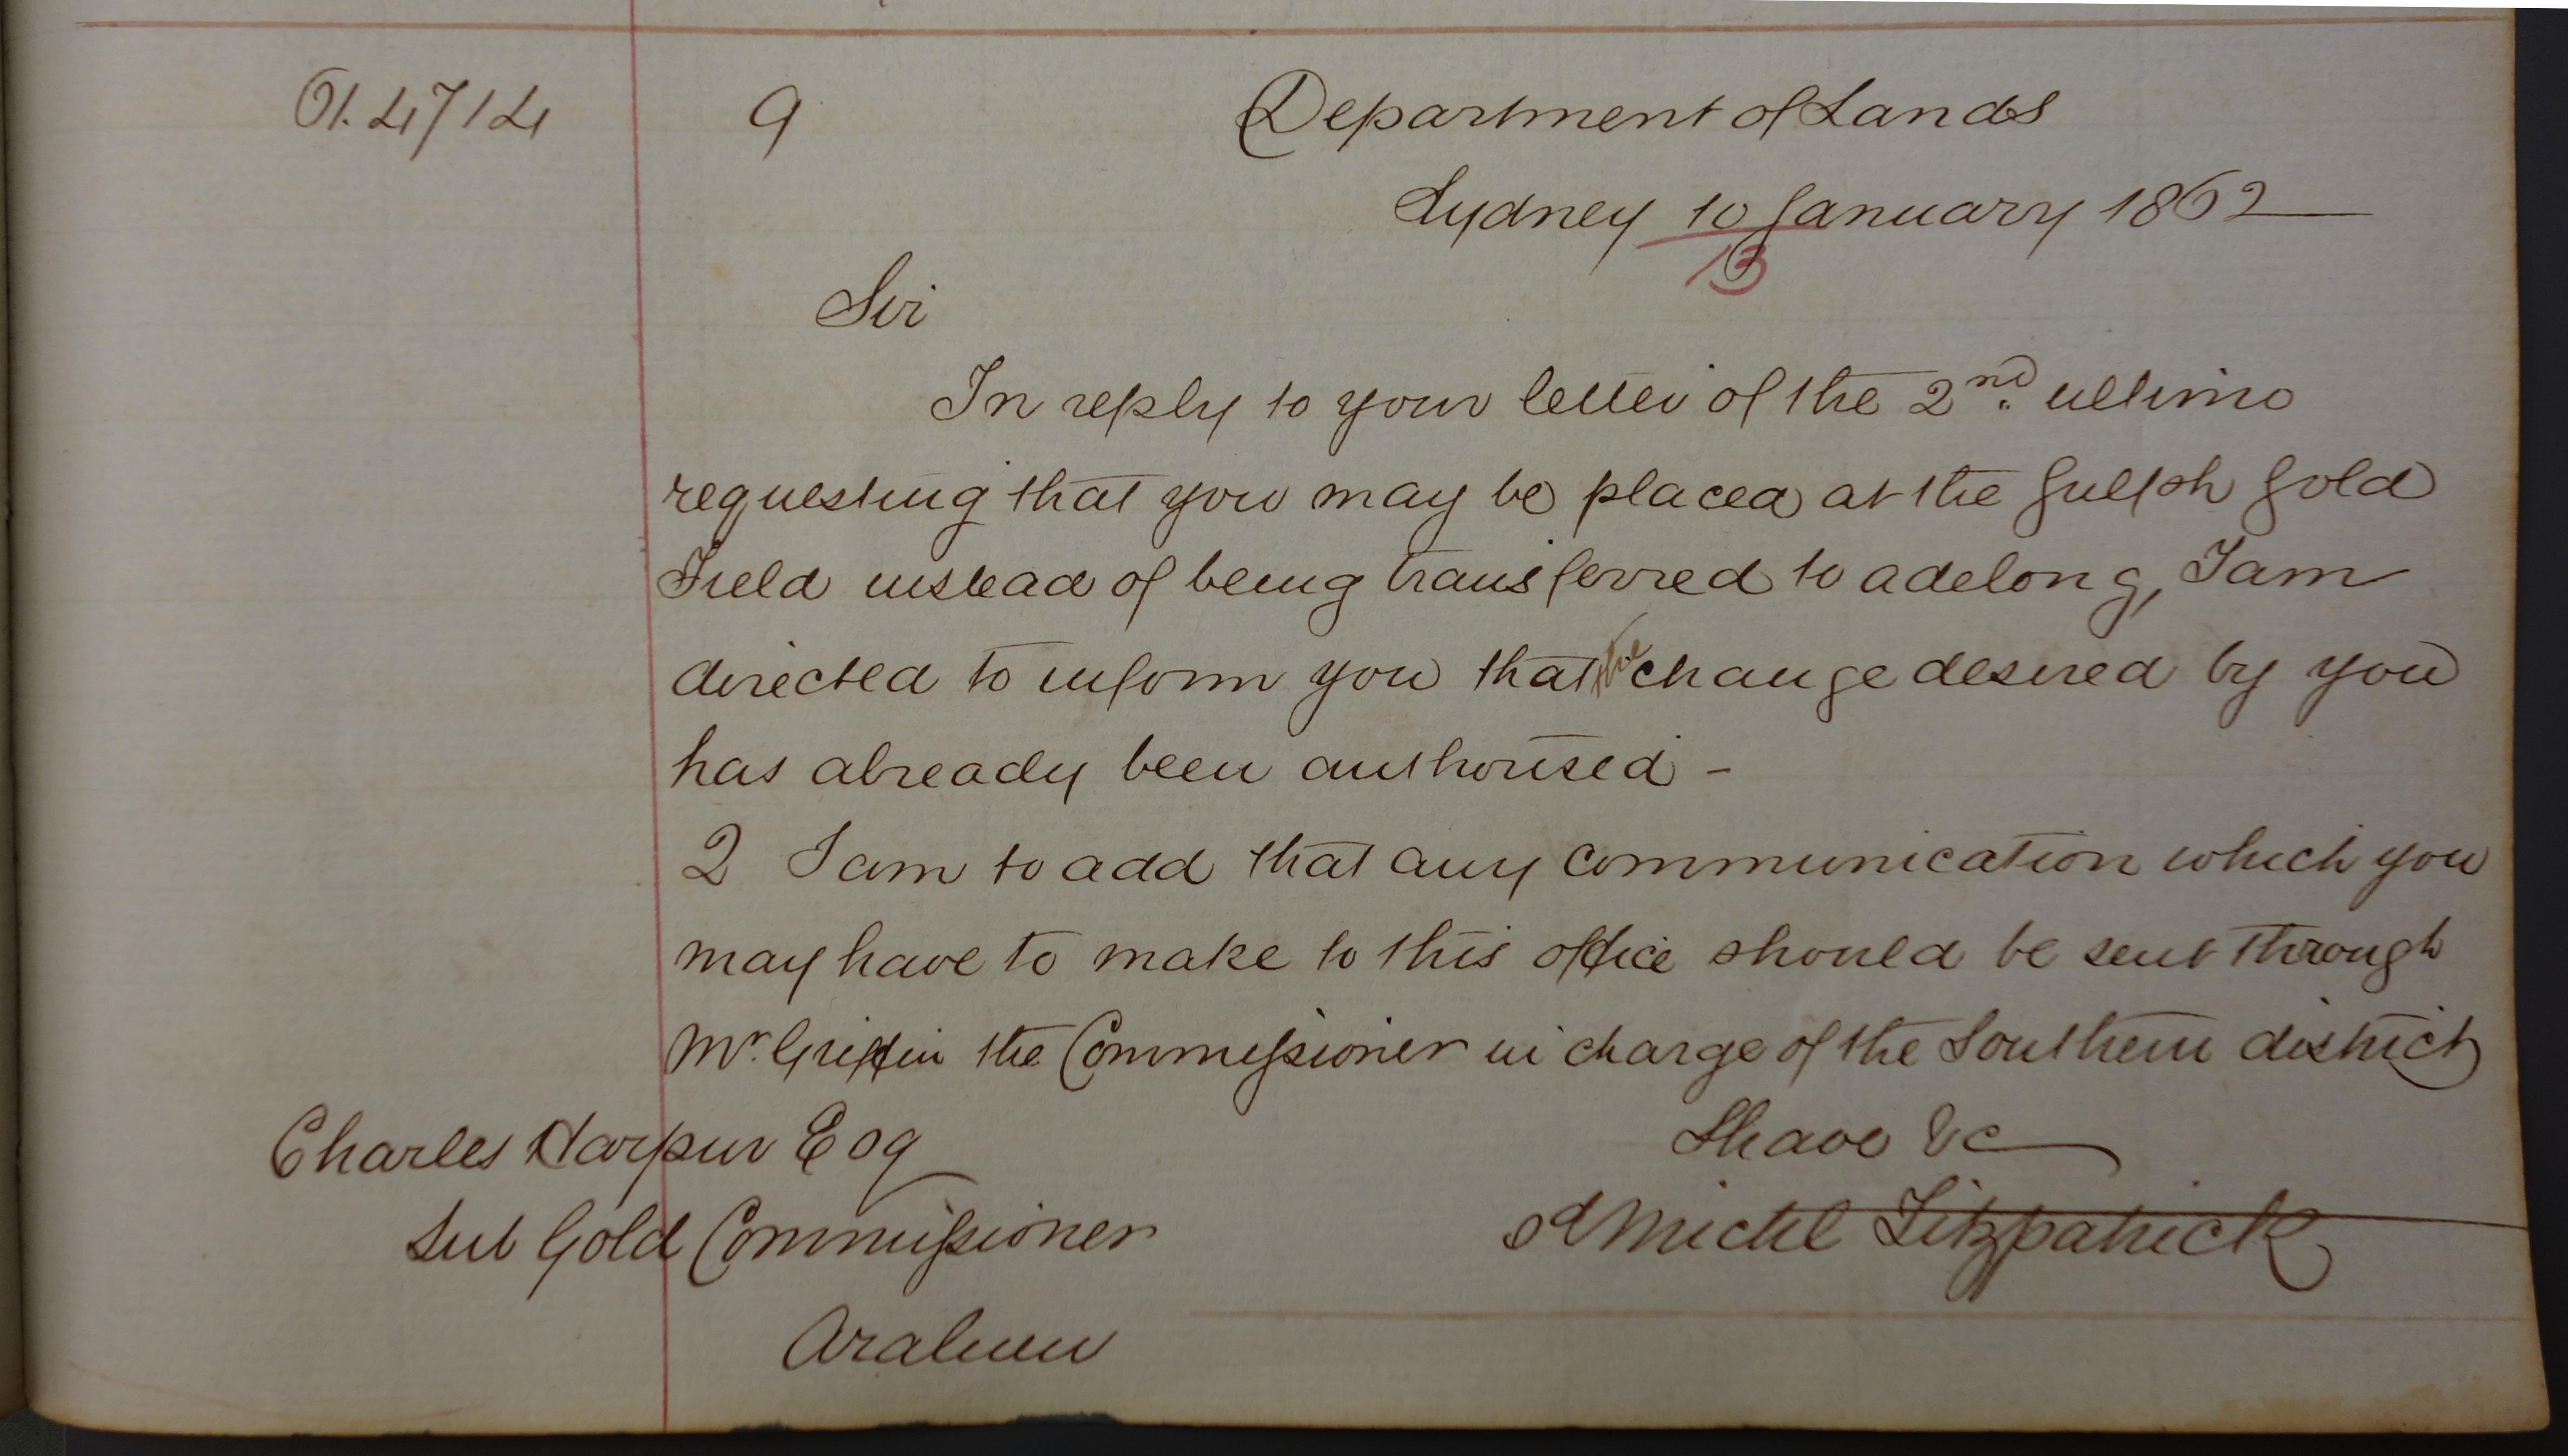 61.4714 9 Department of Lands
Sydney 10 January 1862
13
Sir
In reply to your letter of the 2nd. ultimo
requesting that you may be placed at the Gulph Gold
Field instead of being transferred to adelong, I am
directed to inform you that the change desired by you
has already been authorised -
2 I am to add that any communication which you
may have to make to this office should be sent through
Mr. Griffin the Commissioner in charge of the Southern district
Charles Harpur Esq I have &c
Sub Gold Commissioner sd Michl Fitzpatrick
Araluen